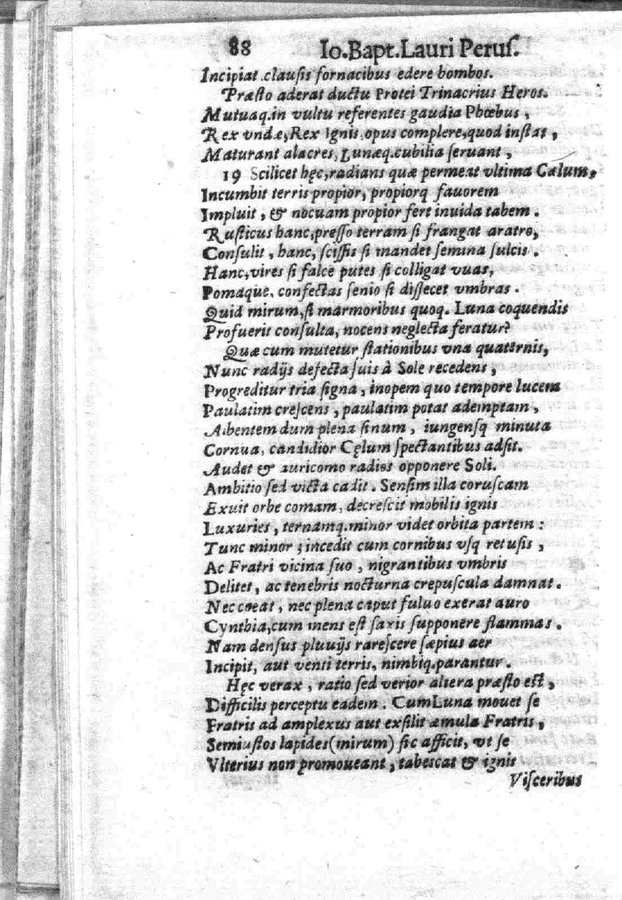 88 Io.Bapt.Lauri Peruſ.
Incipiat clauſis fornacibus edere bombos.
Præſto aderat ductu Protei Trinacrius Heros.
Mutuaq.in vultu referentes gaudia Phœbus,
Rex vndæ,Rex Ignis,opus complere,quod inſtat,
Maturant alacres, Lunæq.cubilia ſeruant,
19 Scilicet hęc,radians quæ permeat vltima Cœlum,
Incumbit terris propior, propiorq fauorem
Impluit, & nocuam propior fert inuida tabem.
Ruſticus hanc,preſſo terram ſi frangat aratro,
Conſulit, hanc, ſciſſis ſi mandet ſemina ſulcis.
Hanc,vires ſi falce putes ſi colligat vuas,
Pomaque, confectas ſenio ſi diſſecet vmbras.
Quid mirum,ſi marmoribus quoq. Luna coquendis
Profuerit conſulta, nocens neglecta feratur?
Quæ cum mutetur ſtationibus vna quaternis,
Nunc radijs defecta ſuis à Sole recedens,
Progreditur tria ſigna, inopem quo tempore lucem
Paulatim creſcens, paulatim potat ademptam,
Albentem dum plena ſinum, iungenſq minuta
Cornua, candidior Cęlum ſpectantibus adſit.
Audet & auricomo radios opponere Soli.
Ambitio ſed victa cadit. Senſim illa coruſcam
Exuit orbe comam, decreſcit mobilis ignis
Luxuries, ternamq.minor videt orbita partem:
Tunc minor; incedit cum cornibus vſq retuſis,
Ac Fratri vicina ſuo, nigrantibus vmbris
Delitet, ac tenebris nocturna crepuſcula damnat.
Nec coeat, nec plena caput fuluo exerat auro
Cynthia,cum mens eſt ſaxis ſupponere flammas.
Nam denſus pluuijs rareſcere ſæpius aer
Incipit, aut venti terris, nimbiq.parantur.
Hęc verax, ratio ſed verior altera præſto eſt,
Difficilis perceptu eadem. CumLuna mouet ſe
Fratris ad amplexus aut exſilit æmula Fratris,
Semiuſtos lapides(mirum) ſic afficit, vt ſe
Vlterius non promoueant, tabeſcat & ignis
Viſceribus